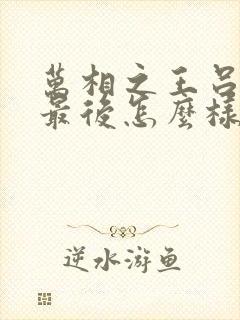 萬相之王呂
最後怎麼樣
逆水游鱼